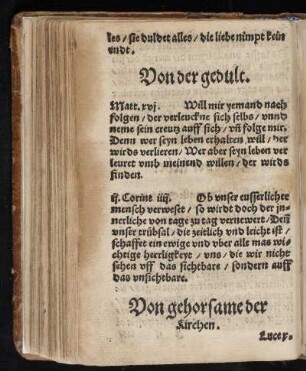 les / sie duldet alles / die liebe nimpt kein
endt.
Von der gedult.
Matt. xvj. Will mir yemand nach
folgen / der verleuckne sich selbs / vnnd
neme sein creutz auff sich / vñ folge mir.
Denn wer seyn leben erhalten will / der
wirds verlieren / Wer aber seyn leben ver
leuret vmb meinend willen / der wirds
finden.
ij. Corint iiij. Ob vnser eusserlicher
mensch verweset / so wirdt doch der jn-
nerliche von tage zu tag vernewert. Deñ
vnser trübsal / die zeitlich vnd leicht ist /
schaffet ein ewige vnd vber alle mas wi-
chtige herrligkeyt / vns / die wir nicht
sehen vff das sichtbare / sondern auff
das vnsichtbare.
Von gehorsame der
Kirchen.
Luce x.